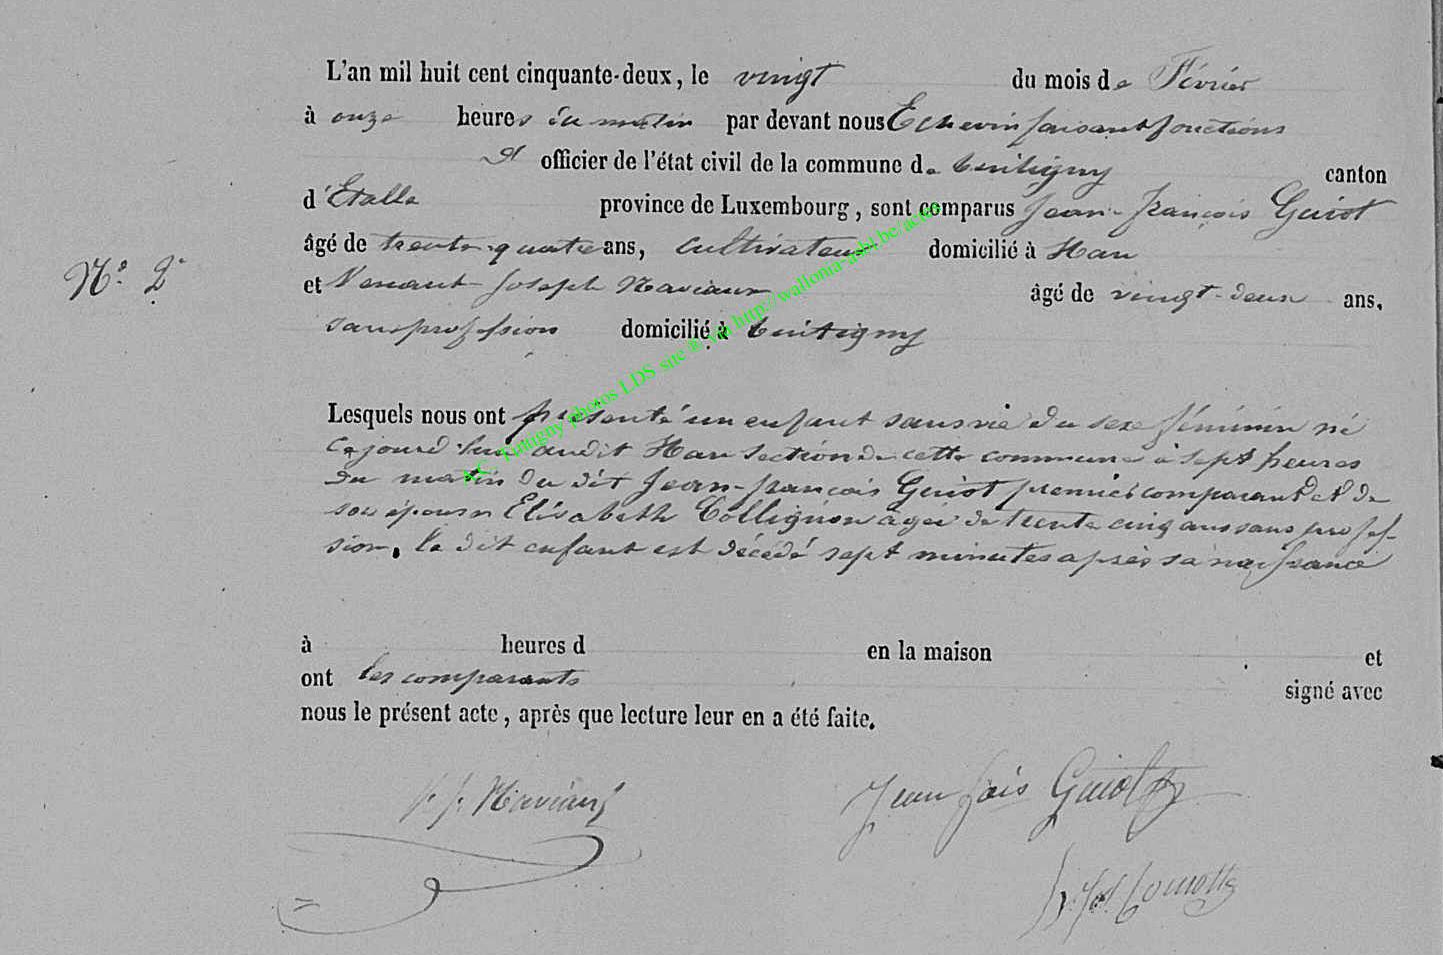 L'an mil huit cent cinquante-deux, le vingt du mois de Février
à onze heures du matin par devant nous Echevin faisant fonctions
d' officier de l'état civil de la commune de tintigny canton
d'Etalle province de Luxembourg, sont comparus Jean-françois Guiot
âgé de trente-quatre ans, cultivateur domicilié à Han
N° 2.
et Venant Joseph Naviaux âgé de vingt-deux ans,
sans profession domicilié à tintigny
Lesquels nous ont présenté un enfant sans vie du sexe féminin né
ce jourd'hui audit Han section de cette commune à sept heures
du matin du dit Jean-françois Guiot premier comparant et de
son épouse Elisabeth Collignon agée de trente cinq ans sans profes-
sion. le dit enfant est décédé sept minutes après sa naissance
à heures d en la maison et
ont les comparants signé avec
nous le présent acte, après que lecture leur en a été faite.
V. J. Naviaux
Jean fois Guiot
A.C. Tintigny photos LDS site ® via http://wallonia-asbl.be/actes